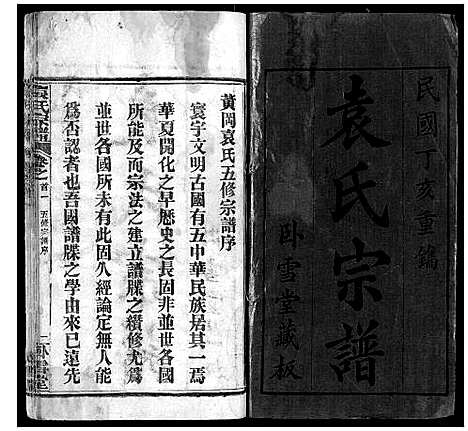 民國丁亥重鐫
袁氏宗譜
臥雪堂藏板
黃岡袁氏五修宗譜序
寰宇文明古國有五中華民族居其一焉
華夏開化之早歷史之長固非並世各國
所能及而宗法之建立譜牒之續修尤為
並世各國所未有此固久經論定無人能
為否認者也吾國譜牒之學由來已遠先
袁氏宗譜 卷之首一 五修宗譜序 一 臥雪堂